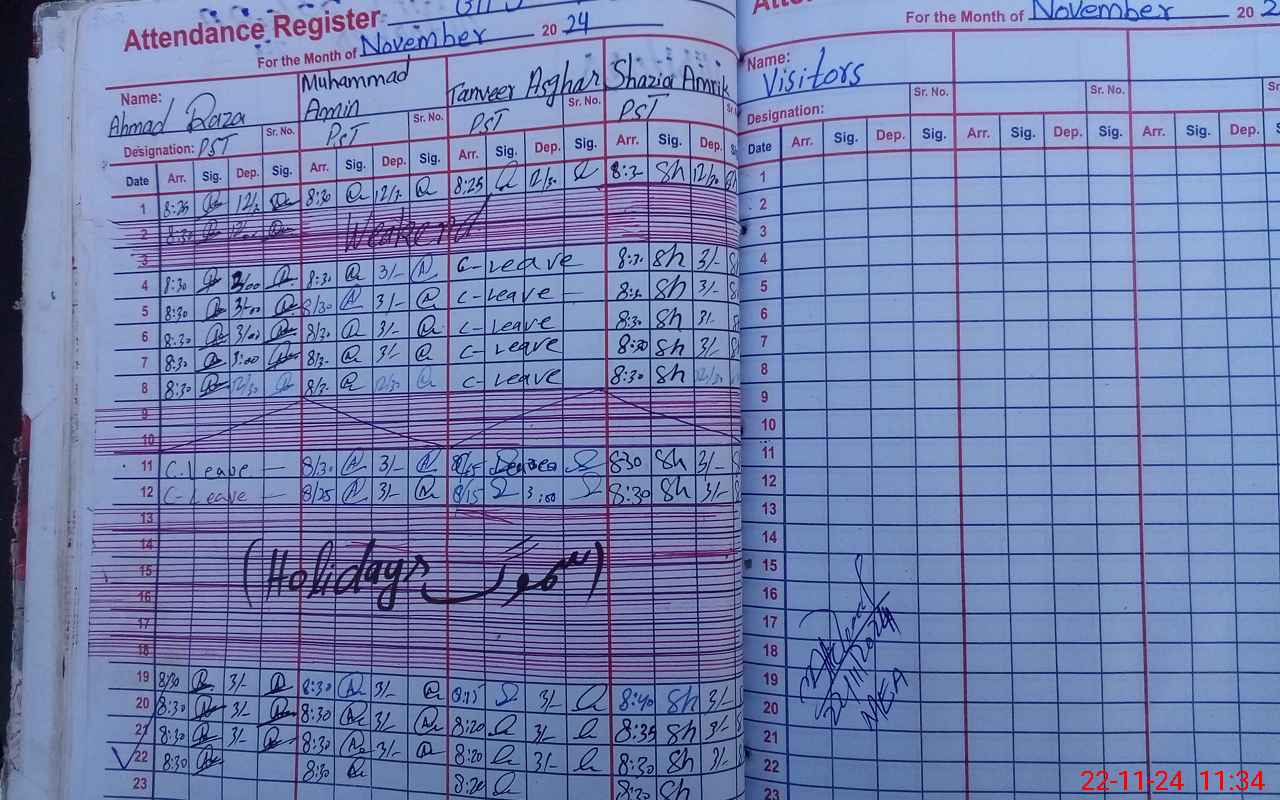 Attendance Register
For the Month of November 2024
Name: Ahmad Raza
Muhammad Amin
Tanveer Asghar
Shazia Amrik
Sr. No. Sr. No. Sr. No.
Designation: PST PST PST PST
Date Arr. Sig. Dep. Sig. Arr. Sig. Dep. Sig. Arr. Sig. Dep. Sig. Arr. Sig. Dep.
1 8:25 8:30 12/30 8:25 12/30 Sh 12/30
2 8:30 Weakend
3
4 8:30 3/00 8:30 3/- C-Leave Sh 3/-
5 8:30 3/00 8/30 3/- C-Leave 8:30 Sh 3/-
6 8:30 3/00 8/30 3/- C-Leave 8:30 Sh 3/-
7 8:30 3:00 3/- C-Leave 8:30 Sh 3/-
8 8:30 12/30 12/30 C-Leave 8:30 Sh 12/30
9
10
11 C.Leave — 8/30 3/- 8/15 830 Sh 3/-
12 C-Leave — 8/25 3/- 8/15 3:00 8:30 Sh 3/-
13
14
15 (Holidays سموگ)
16
17
18
19 8/30 3/- 8:30 3/- 8:15 3/- 8:40 Sh 3/-
20 8:30 3/- 8:30 3/- 8:20 3/- 8:35 Sh 3/-
21 8:30 3/- 8:30 3/- 8:20 3/- 8:30 Sh 3/-
22 8:30 8:30 8:20 8:30 Sh
23
For the Month of November 20
Name: Visitors
Sr. No. Sr. No.
Designation:
Date Arr. Sig. Dep. Sig. Arr. Sig. Dep. Sig. Arr. Sig. Dep.
1
2
3
4
5
6
7
8
9
10
11
12
13
14
15
16
17
18
19
20
21
22
23
MEA
22-11-24 11:34